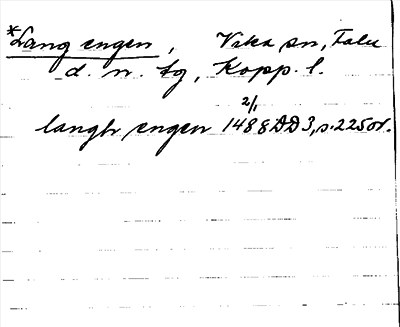 *Lang engen, Vika sn, Falu
d. n. tg, Kopp. l.
2/1
langh engen 1488 DD3, s. 225 or.